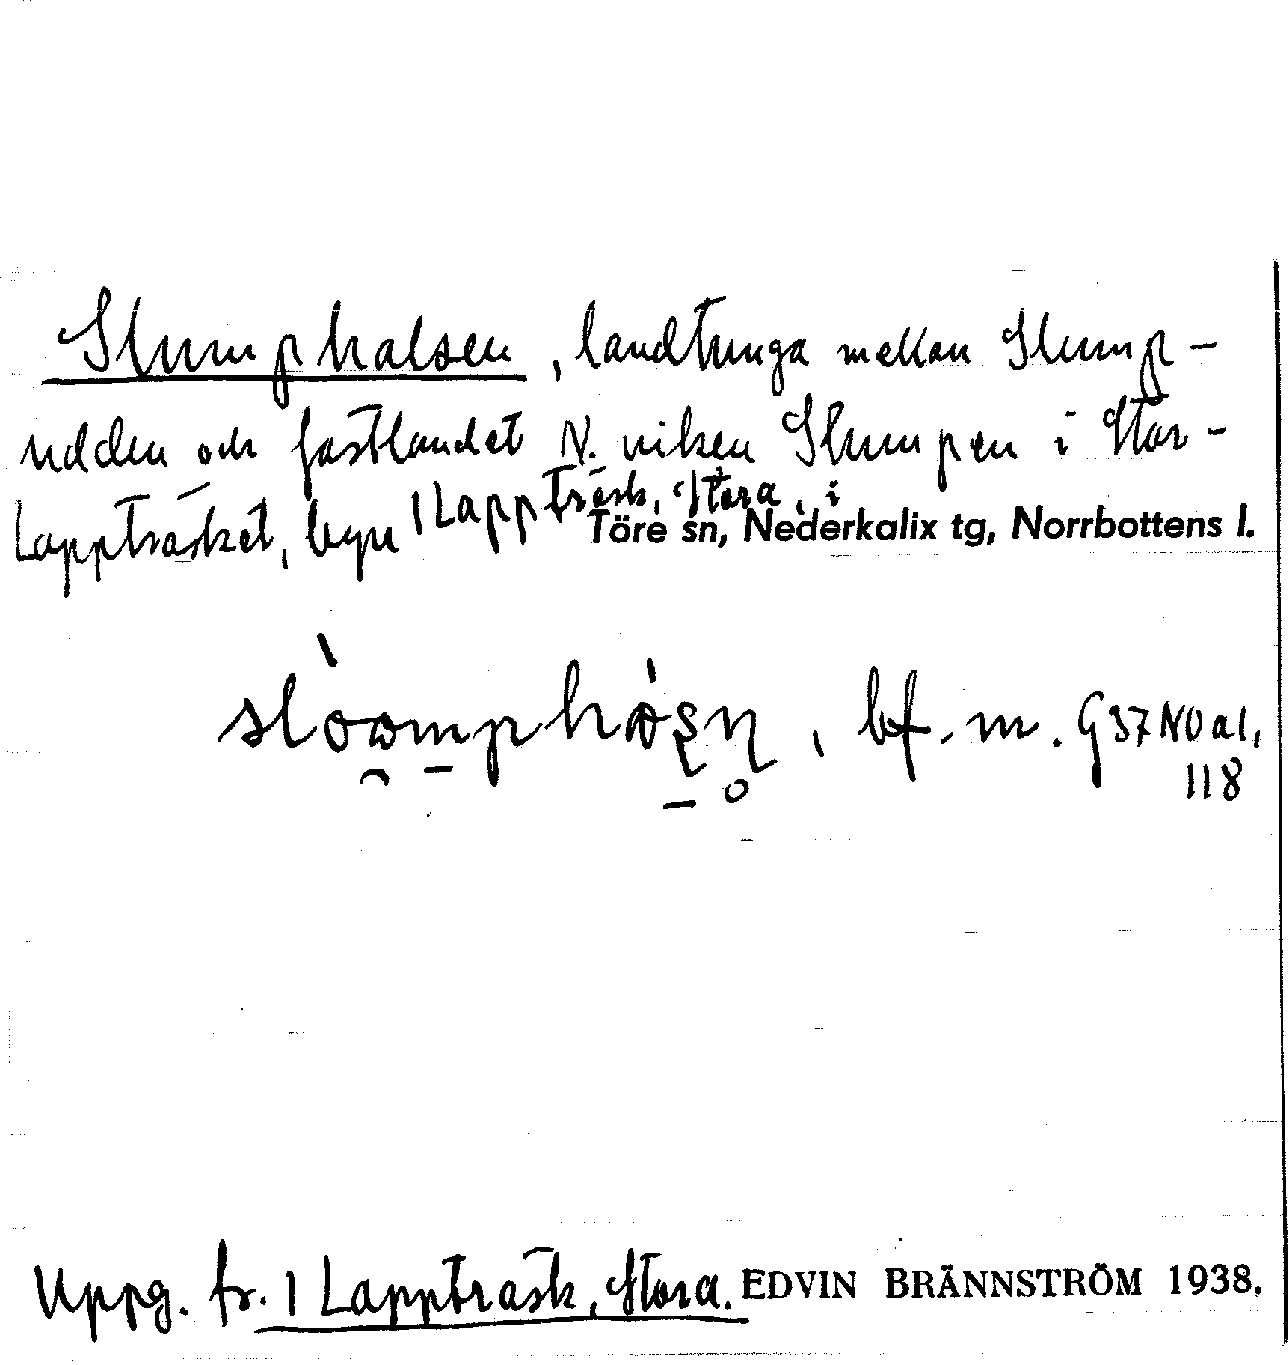 Slumphalsen, landtunga mellan Slump-
udden och fastlandet N. viken Slumpen i Stor-
Lappträsket, byn 1 Lappträsk, Stora, i
Töre sn, Nederkalix tg, Norrbottens l.
bf. m. G 37 NO a1,
118
Uppg. fr. 1 Lappträsk, Stora. EDVIN BRÄNNSTRÖM 1938.